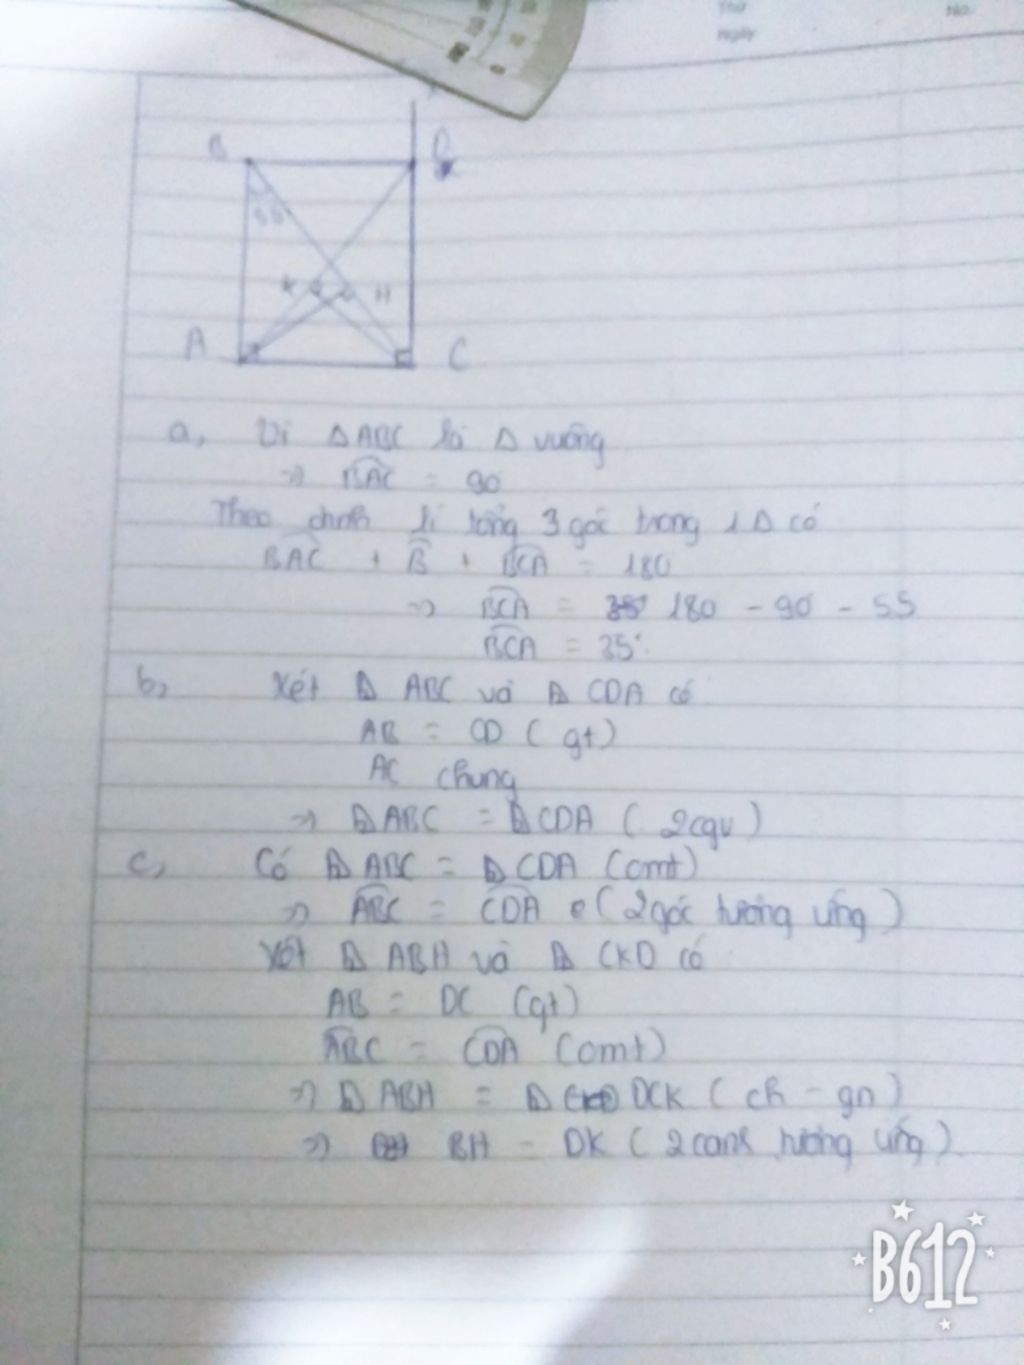 Thứ
No.
Ngày
B D
55
K H
A C
a, Vì Δ ABC là Δ vuông
=> BAC = 90
Theo định lí tổng 3 góc trong 1 Δ có
BAC + B + BCA = 180
=> BCA = 180 - 90 - 55
BCA = 35°
b, Xét Δ ABC và Δ CDA có
AB = CD (gt)
AC chung
=> Δ ABC = Δ CDA (2cgv)
c, Có Δ ABC = Δ CDA (cmt)
=> ABC = CDA (2 góc tương ứng)
Xét Δ ABH và Δ CKD có
AB = DC (gt)
ABC = CDA (cmt)
=> Δ ABH = Δ DCK (ch - gn)
=> BH = DK (2 cạnh tương ứng)
B612